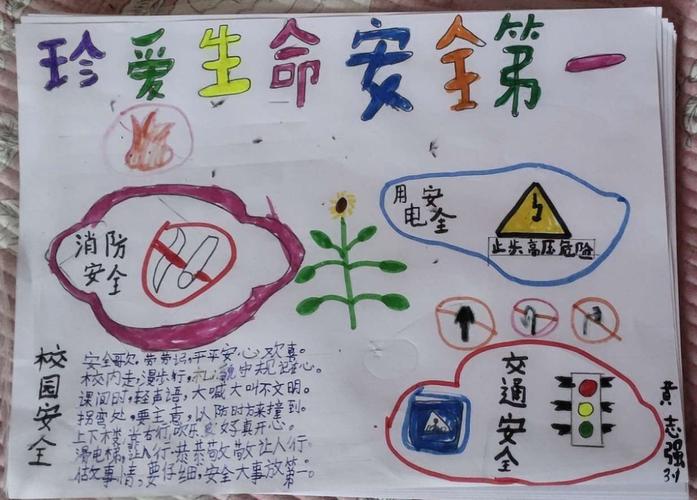 珍爱生命安全第一
消防
安全
用安
电全
止步高压危险
校园安全
安全歌,劳劳记,平平安心欢喜。
校内走,漫步行,礼貌守规记心。
课间时,轻声语,大喊大叫不文明。
拐弯处,要主意,以防对方来撞到。
上下木娄,靠右行,欢乐友好真开心。
滑电梯,让人行,恭恭敬敬让人行。
做事情,要仔细,安全大事放第一。
交通安全
黄志强
3.1